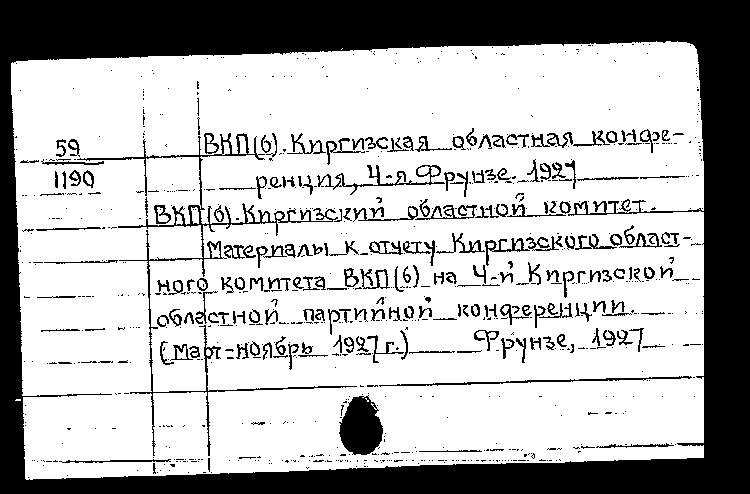 59 ВКП(б). Киргизская областная конфе-
1190 ренция, 4-я. Фрунзе. 1927
ВКП(б). Киргизский областной комитет.
Материалы к отчету Киргизского област-
ного комитета ВКП(б) на 4-й Киргизской
областной партийной конференции.
(Март-ноябрь 1927 г.) Фрунзе, 1927